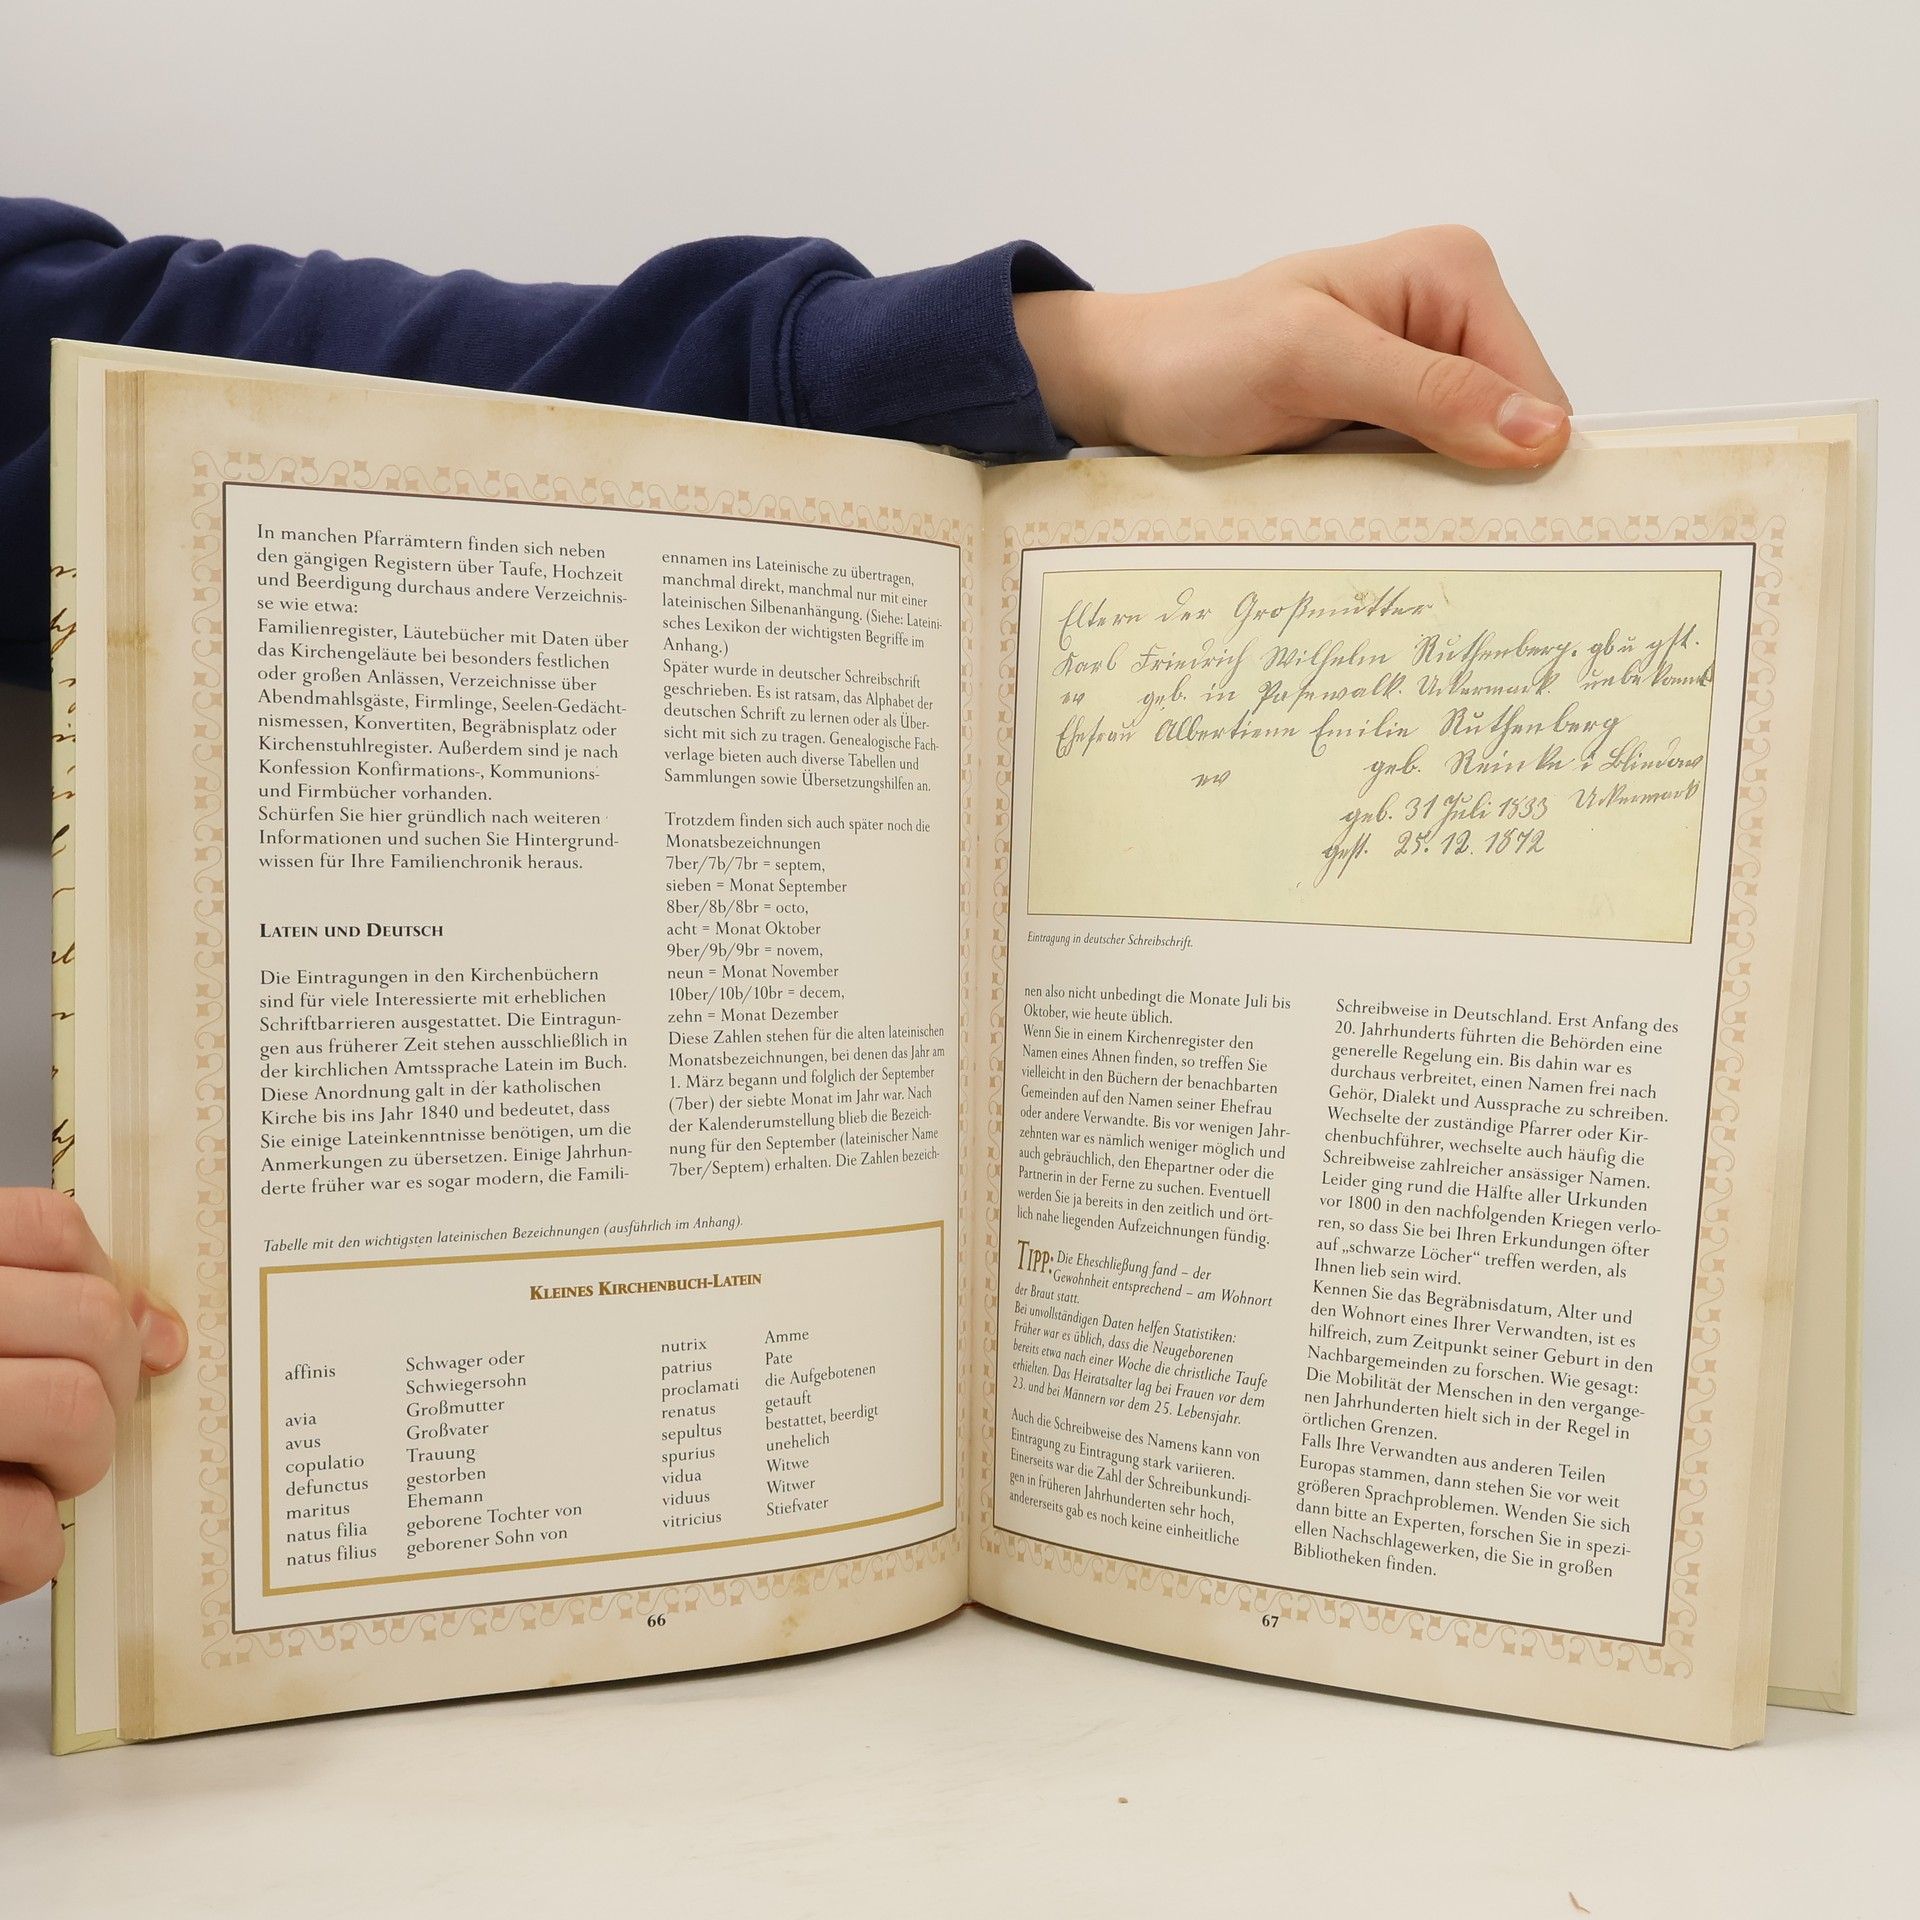 In manchen Pfarrämtern finden sich neben
den gängigen Registern über Taufe, Hochzeit
und Beerdigung durchaus andere Verzeichnis-
se wie etwa:
Familienregister, Läutebücher mit Daten über
das Kirchengeläute bei besonders festlichen
oder großen Anlässen, Verzeichnisse über
Abendmahlsgäste, Firmlinge, Seelen-Gedächt-
nismessen, Konvertiten, Begräbnisplatz oder
Kirchenstuhlregister. Außerdem sind je nach
Konfession Konfirmations-, Kommunions-
und Firmbücher vorhanden.
Schürfen Sie hier gründlich nach weiteren
Informationen und suchen Sie Hintergrund-
wissen für Ihre Familienchronik heraus.
LATEIN UND DEUTSCH
Die Eintragungen in den Kirchenbüchern
sind für viele Interessierte mit erheblichen
Schriftbarrieren ausgestattet. Die Eintragun-
gen aus früherer Zeit stehen ausschließlich in
der kirchlichen Amtssprache Latein im Buch.
Diese Anordnung galt in der katholischen
Kirche bis ins Jahr 1840 und bedeutet, dass
Sie einige Lateinkenntnisse benötigen, um die
Anmerkungen zu übersetzen. Einige Jahrhun-
derte früher war es sogar modern, die Famili-
ennamen ins Lateinische zu übertragen,
manchmal direkt, manchmal nur mit einer
lateinischen Silbenanhängung. (Siehe: Lateini-
sches Lexikon der wichtigsten Begriffe im
Anhang.)
Später wurde in deutscher Schreibschrift
geschrieben. Es ist ratsam, das Alphabet der
deutschen Schrift zu lernen oder als Über-
sicht mit sich zu tragen. Genealogische Fach-
verlage bieten auch diverse Tabellen und
Sammlungen sowie Übersetzungshilfen an.
Trotzdem finden sich auch später noch die
Monatsbezeichnungen
7ber/7b/7br = septem,
sieben = Monat September
8ber/8b/8br = octo,
acht = Monat Oktober
9ber/9b/9br = novem,
neun = Monat November
10ber/10b/10br = decem,
zehn = Monat Dezember
Diese Zahlen stehen für die alten lateinischen
Monatsbezeichnungen, bei denen das Jahr am
1. März begann und folglich der September
(7ber) der siebte Monat im Jahr war. Nach
der Kalenderumstellung blieb die Bezeich-
nung für den September (lateinischer Name
7ber/Septem) erhalten. Die Zahlen bezeich-
Tabelle mit den wichtigsten lateinischen Bezeichnungen (ausführlich im Anhang).
KLEINES KIRCHENBUCH-LATEIN
affinis Schwager oder
Schwiegersohn
avia Großmutter
avus Großvater
copulatio Trauung
defunctus gestorben
maritus Ehemann
natus filia geborene Tochter von
natus filius geborener Sohn von
nutrix Amme
patrius Pate
proclamati die Aufgebotenen
renatus getauft
sepultus bestattet, beerdigt
spurius unehelich
vidua Witwe
viduus Witwer
vitricius Stiefvater
66
Eltern der Großmutter
Karl Friedrich Wilhelm Ruthenberg. gb u gst.
ev geb. in Pasewalk. Uckermark. unbekannt
Ehefrau Albertiene Emilie Ruthenberg
ev geb. Reinke i Blindow
geb. 31 Juli 1833 Uckermark
gest. 25. 12. 1872
Eintragung in deutscher Schreibschrift.
nen also nicht unbedingt die Monate Juli bis
Oktober, wie heute üblich.
Wenn Sie in einem Kirchenregister den
Namen eines Ahnen finden, so treffen Sie
vielleicht in den Büchern der benachbarten
Gemeinden auf den Namen seiner Ehefrau
oder andere Verwandte. Bis vor wenigen Jahr-
zehnten war es nämlich weniger möglich und
auch gebräuchlich, den Ehepartner oder die
Partnerin in der Ferne zu suchen. Eventuell
werden Sie ja bereits in den zeitlich und ört-
lich nahe liegenden Aufzeichnungen fündig.
TIPP: Die Eheschließung fand – der
Gewohnheit entsprechend – am Wohnort
der Braut statt.
Bei unvollständigen Daten helfen Statistiken:
Früher war es üblich, dass die Neugeborenen
bereits etwa nach einer Woche die christliche Taufe
erhielten. Das Heiratsalter lag bei Frauen vor dem
23. und bei Männern vor dem 25. Lebensjahr.
Auch die Schreibweise des Namens kann von
Eintragung zu Eintragung stark variieren.
Einerseits war die Zahl der Schreibunkundi-
gen in früheren Jahrhunderten sehr hoch,
andererseits gab es noch keine einheitliche
Schreibweise in Deutschland. Erst Anfang des
20. Jahrhunderts führten die Behörden eine
generelle Regelung ein. Bis dahin war es
durchaus verbreitet, einen Namen frei nach
Gehör, Dialekt und Aussprache zu schreiben.
Wechselte der zuständige Pfarrer oder Kir-
chenbuchführer, wechselte auch häufig die
Schreibweise zahlreicher ansässiger Namen.
Leider ging rund die Hälfte aller Urkunden
vor 1800 in den nachfolgenden Kriegen verlo-
ren, so dass Sie bei Ihren Erkundungen öfter
auf „schwarze Löcher“ treffen werden, als
Ihnen lieb sein wird.
Kennen Sie das Begräbnisdatum, Alter und
den Wohnort eines Ihrer Verwandten, ist es
hilfreich, zum Zeitpunkt seiner Geburt in den
Nachbargemeinden zu forschen. Wie gesagt:
Die Mobilität der Menschen in den vergange-
nen Jahrhunderten hielt sich in der Regel in
örtlichen Grenzen.
Falls Ihre Verwandten aus anderen Teilen
Europas stammen, dann stehen Sie vor weit
größeren Sprachproblemen. Wenden Sie sich
dann bitte an Experten, forschen Sie in spezi-
ellen Nachschlagewerken, die Sie in großen
Bibliotheken finden.
67